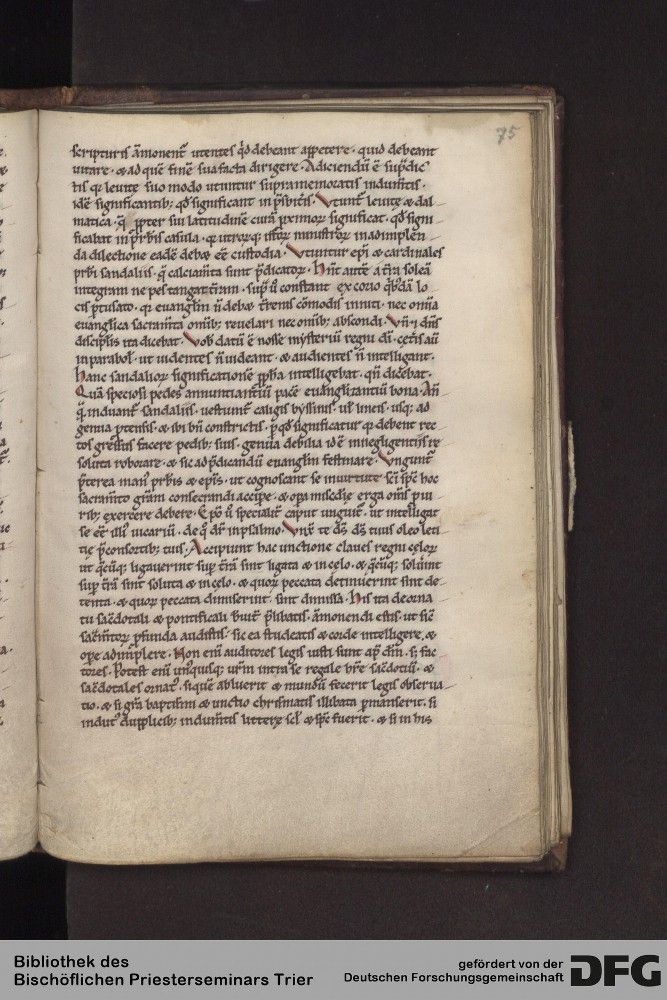 75
scripturis ãmonent᷑ utentes q̇d debeant appetere · quid debeant
uitare · & ad quẽ finẽ sua facta dirigere · Adiciendũ ẽ sup̃dic
tis qꝛ leuitę suo modo utuntur supramemoratis indum̃tis ·
idẽ significantib; qd̓ significant in p̃sbit̃is · Vtunt᷑ leuitę & dal
matica · q̃ ꝓpter sui latitudinẽ curã ꝓximoꝝ significat · qd̓ signi
ficabat in p̃rbis casula · qꝛ utrorq;
da dilectione eadẽ debꝫ eẽ custodia · Vtuntur ep̃i & cardinales
prb̃i sandaliis · q̃ calciam̃ta sunt p̃dicatoꝝ · Hñt autẽ a t̃ra soleã
integram ne pes tangat t̃ram · sup̃ ũ constant ex corio q̃bdã lo
cis ꝑtusato · qꝛ euanglm̃ ñ debꝫ t̃renis cõmodis inniti · nec om̃ia
euanglica sacram̃ta om̃ib; reuelari nec om̃ib; abscondi · Vñ & dñs
discipl̃is ita dicebat · Vob̃ datũ ẽ nosse mysteriũ regni dĩ · cet̃is aũ
in parabol̃ · ut uidentes ñ uideant · & audientes ñ intelligant ·
Hanc sandalioꝝ significationẽ ꝓph̃a intelligebat · qñ dicebat ·
Quã speciosi pedes annuntiantiũ pacẽ euanglizantiũ bona · Añ
q̃ induant᷑ sandaliis · uestiunt᷑ caligis byssinis · ut̃ lineis · usq; ad
genua ꝓtensis · & ibi bñ constrictis · ꝑ qd̓ significatur qꝛ debent rec
tos gressus facere pedib; suis · genua debilia id ẽ in negligentiis re
soluta roborare · & sic ad p̃dicandũ euanglm̃ festinare · Vngunt᷑
p̃terea manꝰ prb̃is & ep̃is · ut cognoscant se in uirtute sc̃i sp̃c hoc
sacram̃to gr̃am consecrandi accipe · & opa misc̃die erga om̃s ꝓ ui
rib; exercere debere · Ep̃o ũ specialit᷑ caput unguit᷑ · ut intelligat
se eẽ illiꝰ uicariũ · de q̊ dr̃ in psalmo · Vnx̃ te dš dš tuus oleo leti
tię p̃ consortib; tuis · Accipiunt hac unctione claues regni cęloꝝ
ut q̃cũq; ligauerint sup̃ t̃rã sint ligata & in cęlo · & q̃cũq; soluint
sup̃ t̃rã sint soluta & in cęlo · & quoꝝ peccata detinuerint sint de
tenta · & quoꝝ peccata dimiserint · sint dimissa · His ita de orna
tu sac̃dotali & pontificali b̃uit᷑ p̃libatis · ãmonendi estis · ut sic̃
sac̃m̃toꝝ ꝓfunda audistis · sic ea studeatis & corde intelligere &
oꝑe adimplere · Non eni auditores legis iusti sunt apͩ dm̃ · s; fac
tores · Potest eni unusquisq; ur̃m intra se regale ur̃e sac̃dotiũ · &
sac̃dotales ornatꝰ · si quẽ abluerit & mundũ fecerit legis obserua
tio · & si gr̃a baptismi & unctio chrismatis illibata ꝑmanserit · si
indutꝰ dupplicib; indum̃tis litterę scł & sp̃c fuerit · & si in his
Bibliothek des
Bischöflichen Priesterseminars Trier
gefördert von der
Deutschen Forschungsgemeinschaft
DFG